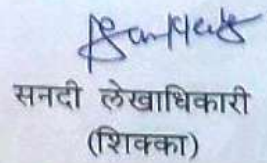 सनदी लेखाधिकारी
(शिक्का)